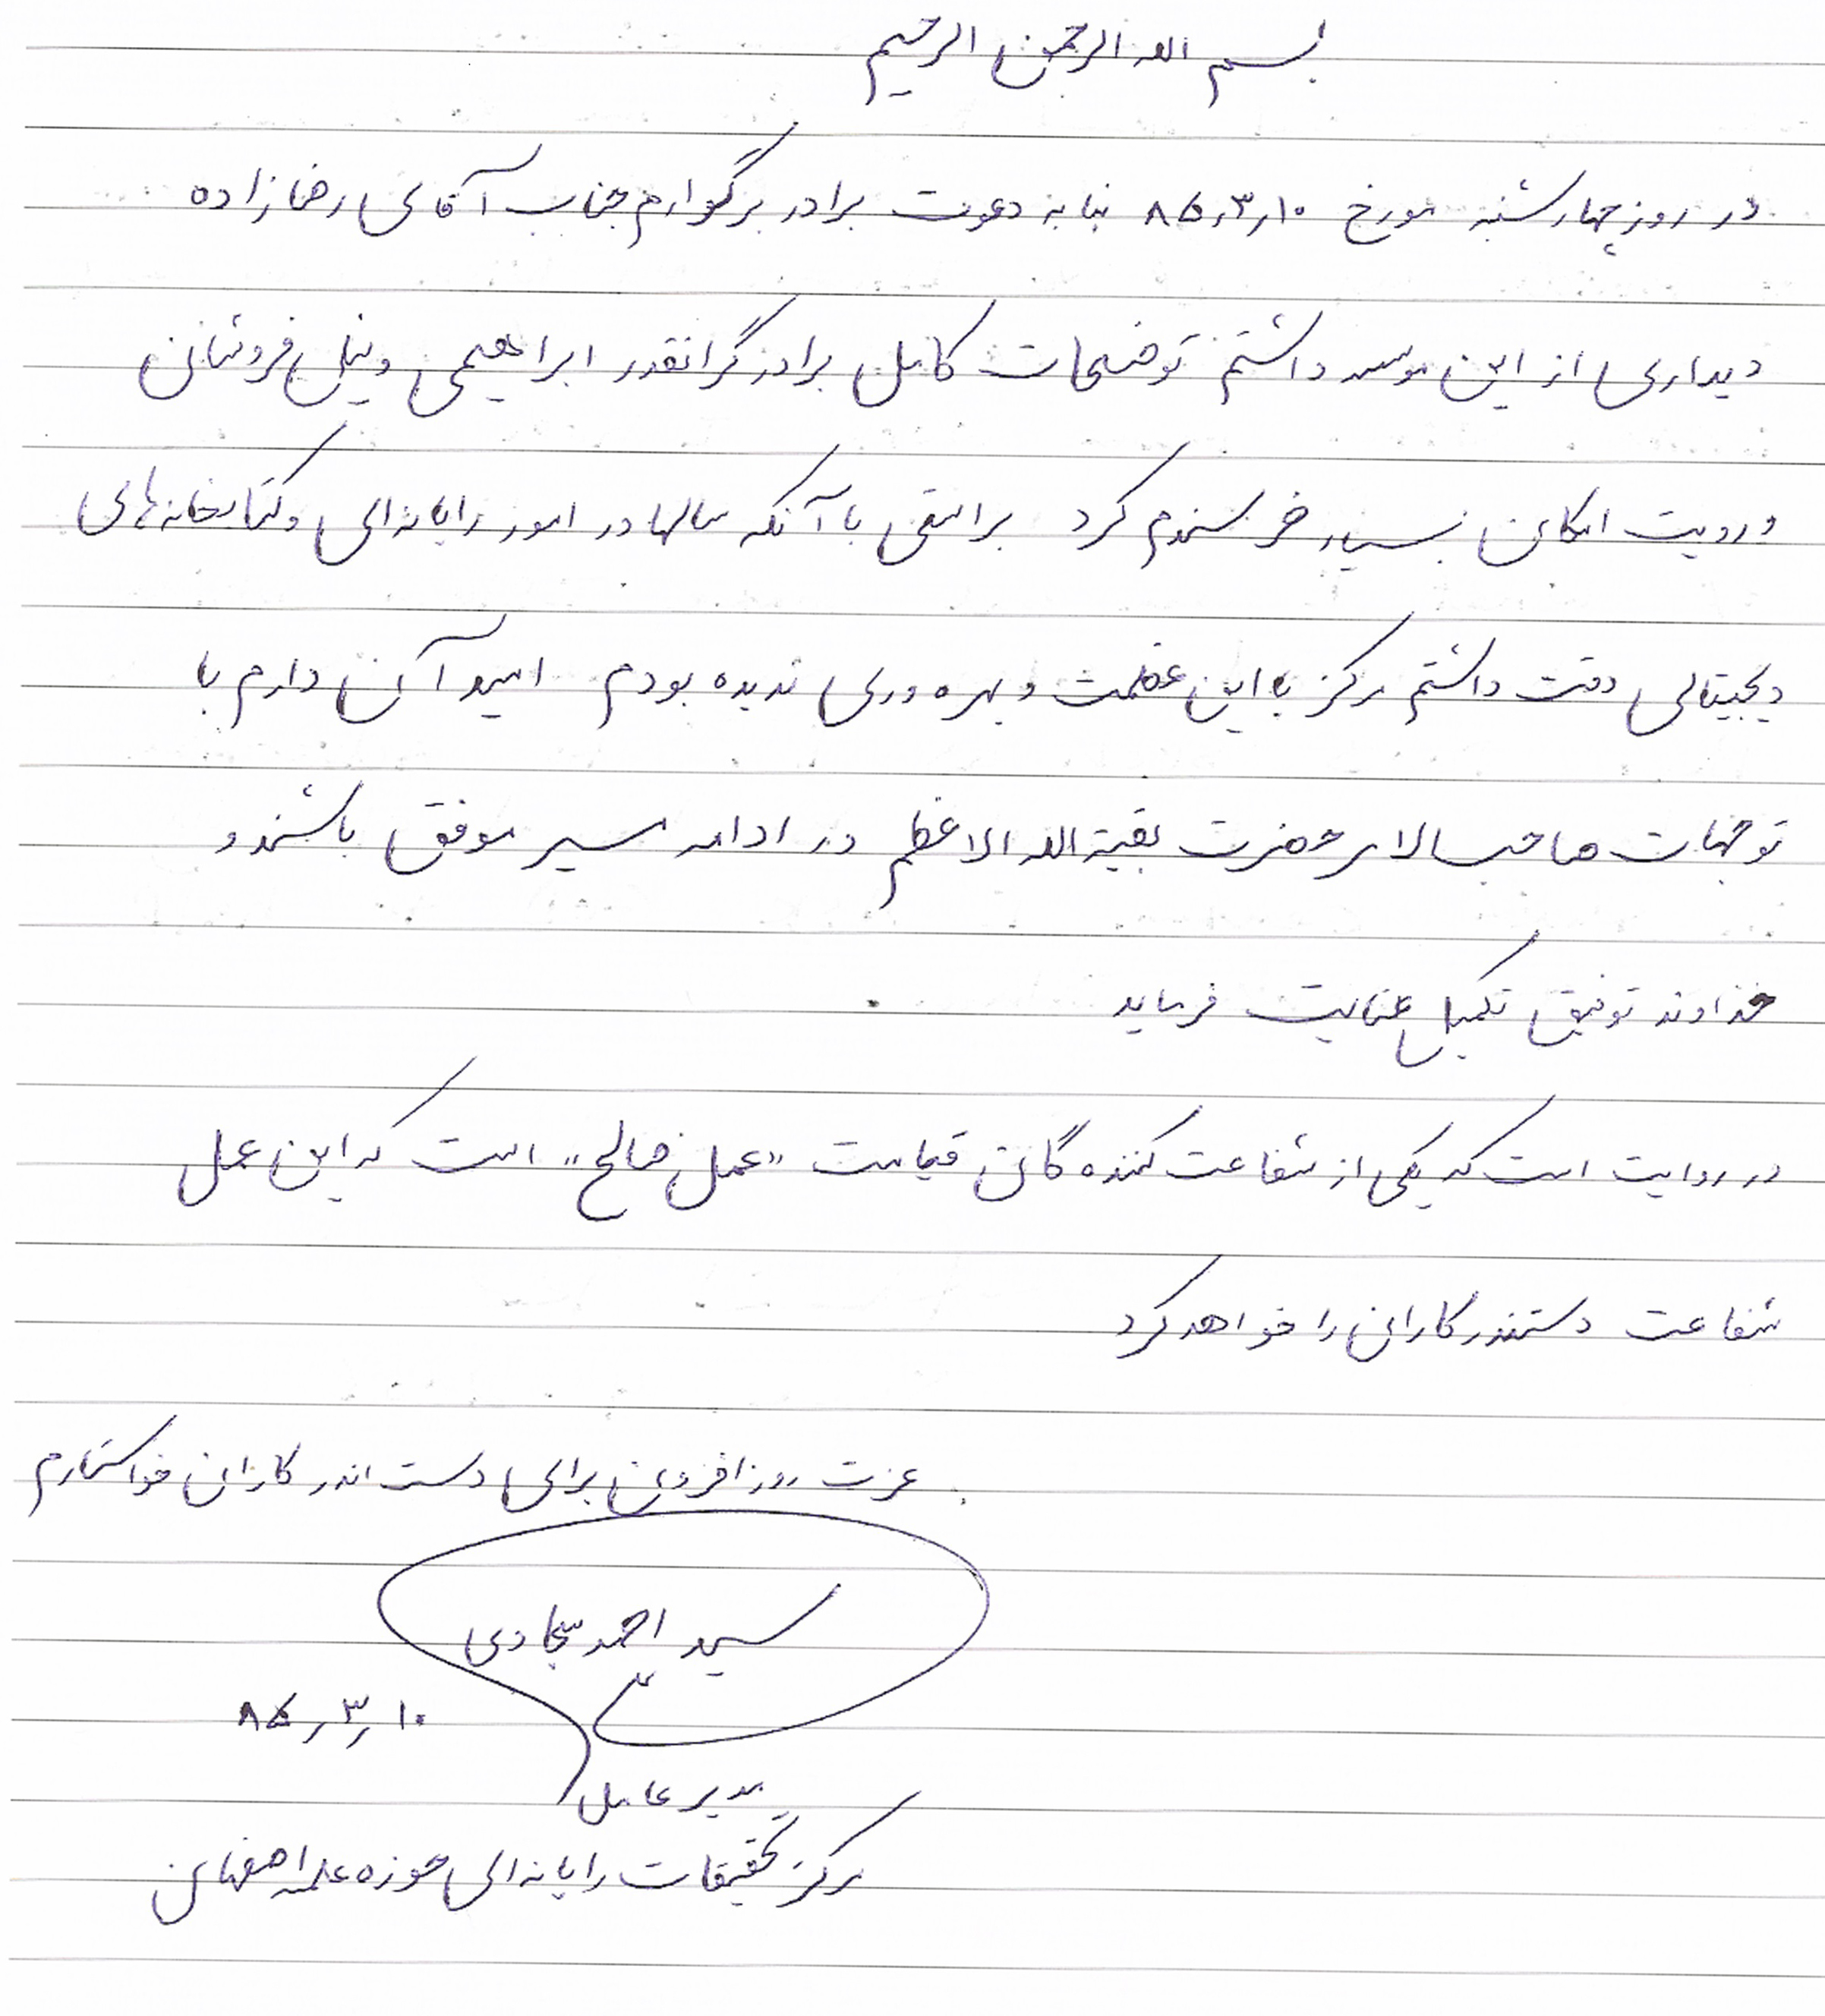 بسم الله الرحمن الرحیم
در روز چهارشنبه مورخ ۸۵٫۳٫۱۰ بنا به دعوت برادر بزرگوارم جناب آقای رضازاده
دیداری از این موسسه داشتم توضیحات کامل برادر گرانقدر ابراهیمی و نیل فروشان
و رویت امکان بسیار خرسندم کرد براستی با آنکه سالها در امور رایانه‌ای و کتابخانه‌های
دیجیتالی دقت داشتم مرکز با این عظمت و بهره وری ندیده بودم امید آن دارم با
توجهات صاحب حضرت بقیة الله الاعظم در ادامه مسیر موفق باشند و
خداوند توفیق تکمیل عنایت فرماید
در روایت است که یکی از شفاعت کننده گان قیامت «عمل صالح» است که این عمل
شفاعت دستندرکاران را خواهد کرد
عزت روزافزون برای دست اندر کاران خواستارم
سید احمد سجادی
۸۵٫۳٫۱۰
مدیر عامل
مرکز تحقیقات رایانه‌ای حوزه علمیه اصفهان